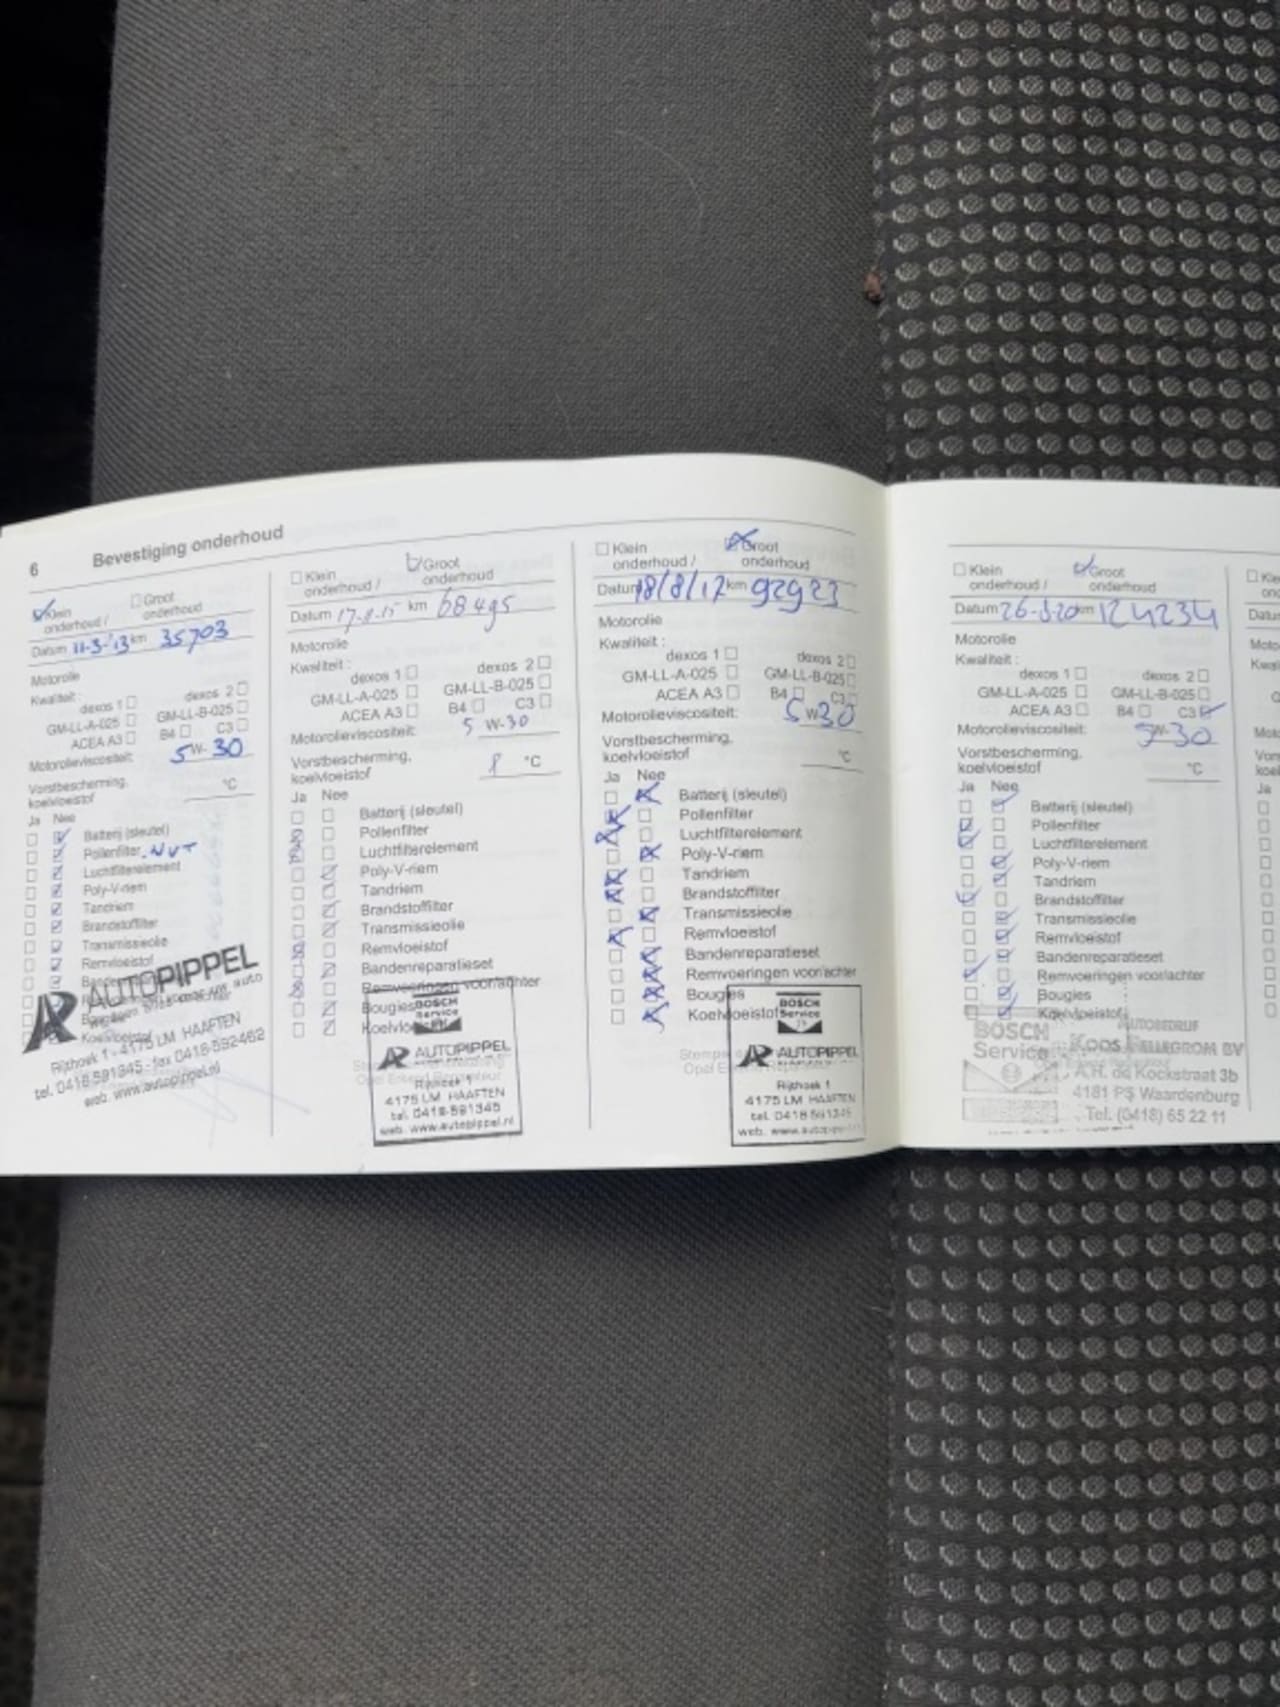 6 Bevestiging onderhoud
Klein onderhoud /
Groot onderhoud
Datum 11-3-'13 km 35703
Motorolie
Kwaliteit :
dexos 1 dexos 2
GM-LL-A-025 GM-LL-B-025
ACEA A3 B4 C3
Motorolieviscositeit: 5 W- 30
Vorstbescherming,
koelvloeistof °C
Ja Nee
Batterij (sleutel)
Pollenfilter
Luchtfilterelement
Poly-V-riem
Tandriem
Brandstoffilter
Transmissieolie
Remvloeistof
Koelvloeistof
AUTOPIPPEL
Rijthoek 1 - 4175 LM HAAFTEN
tel. 0418-591345 - fax 0418-592462
web. www.autopippel.nl
Klein onderhoud /
Groot onderhoud
Datum km 68495
Motorolie
Kwaliteit :
dexos 1 dexos 2
GM-LL-A-025 GM-LL-B-025
ACEA A3 B4 C3
Motorolieviscositeit: 5 W-30
Vorstbescherming,
koelvloeistof °C
Ja Nee
Batterij (sleutel)
Pollenfilter
Luchtfilterelement
Poly-V-riem
Tandriem
Brandstoffilter
Transmissieolie
Remvloeistof
Bandenreparatieset
Remvoeringen voor/achter
Bougies
Koelvloeistof
BOSCH
Service
AUTOPIPPEL
Rijthoek 1
4175 LM HAAFTEN
tel. 0418-591345
web. www.autopippel.nl
Klein onderhoud /
Groot onderhoud
Datum 18/8/17 km 92923
Motorolie
Kwaliteit :
dexos 1 dexos 2
GM-LL-A-025 GM-LL-B-025
ACEA A3 B4 C3
Motorolieviscositeit: 5 W 30
Vorstbescherming,
koelvloeistof °C
Ja Nee
Batterij (sleutel)
Pollenfilter
Luchtfilterelement
Poly-V-riem
Tandriem
Brandstoffilter
Transmissieolie
Remvloeistof
Bandenreparatieset
Remvoeringen voor/achter
Bougies
Koelvloeistof
BOSCH
Service
AUTOPIPPEL
Rijthoek 1
4175 LM HAAFTEN
tel. 0418-591345
web. www.autopippel.nl
Klein onderhoud /
Groot onderhoud
Datum km 124234
Motorolie
Kwaliteit :
dexos 1 dexos 2
GM-LL-A-025 GM-LL-B-025
ACEA A3 B4 C3
Motorolieviscositeit: 5W-30
Vorstbescherming,
koelvloeistof °C
Ja Nee
Batterij (sleutel)
Pollenfilter
Luchtfilterelement
Poly-V-riem
Tandriem
Brandstoffilter
Transmissieolie
Remvloeistof
Bandenreparatieset
Remvoeringen voor/achter
Bougies
Koelvloeistof
BOSCH
Service
AUTOBEDRIJF
KOOS PELLEGROM BV
A.H. de Kockstraat 3b
4181 PS Waardenburg
Tel. (0418) 65 22 11
Ja